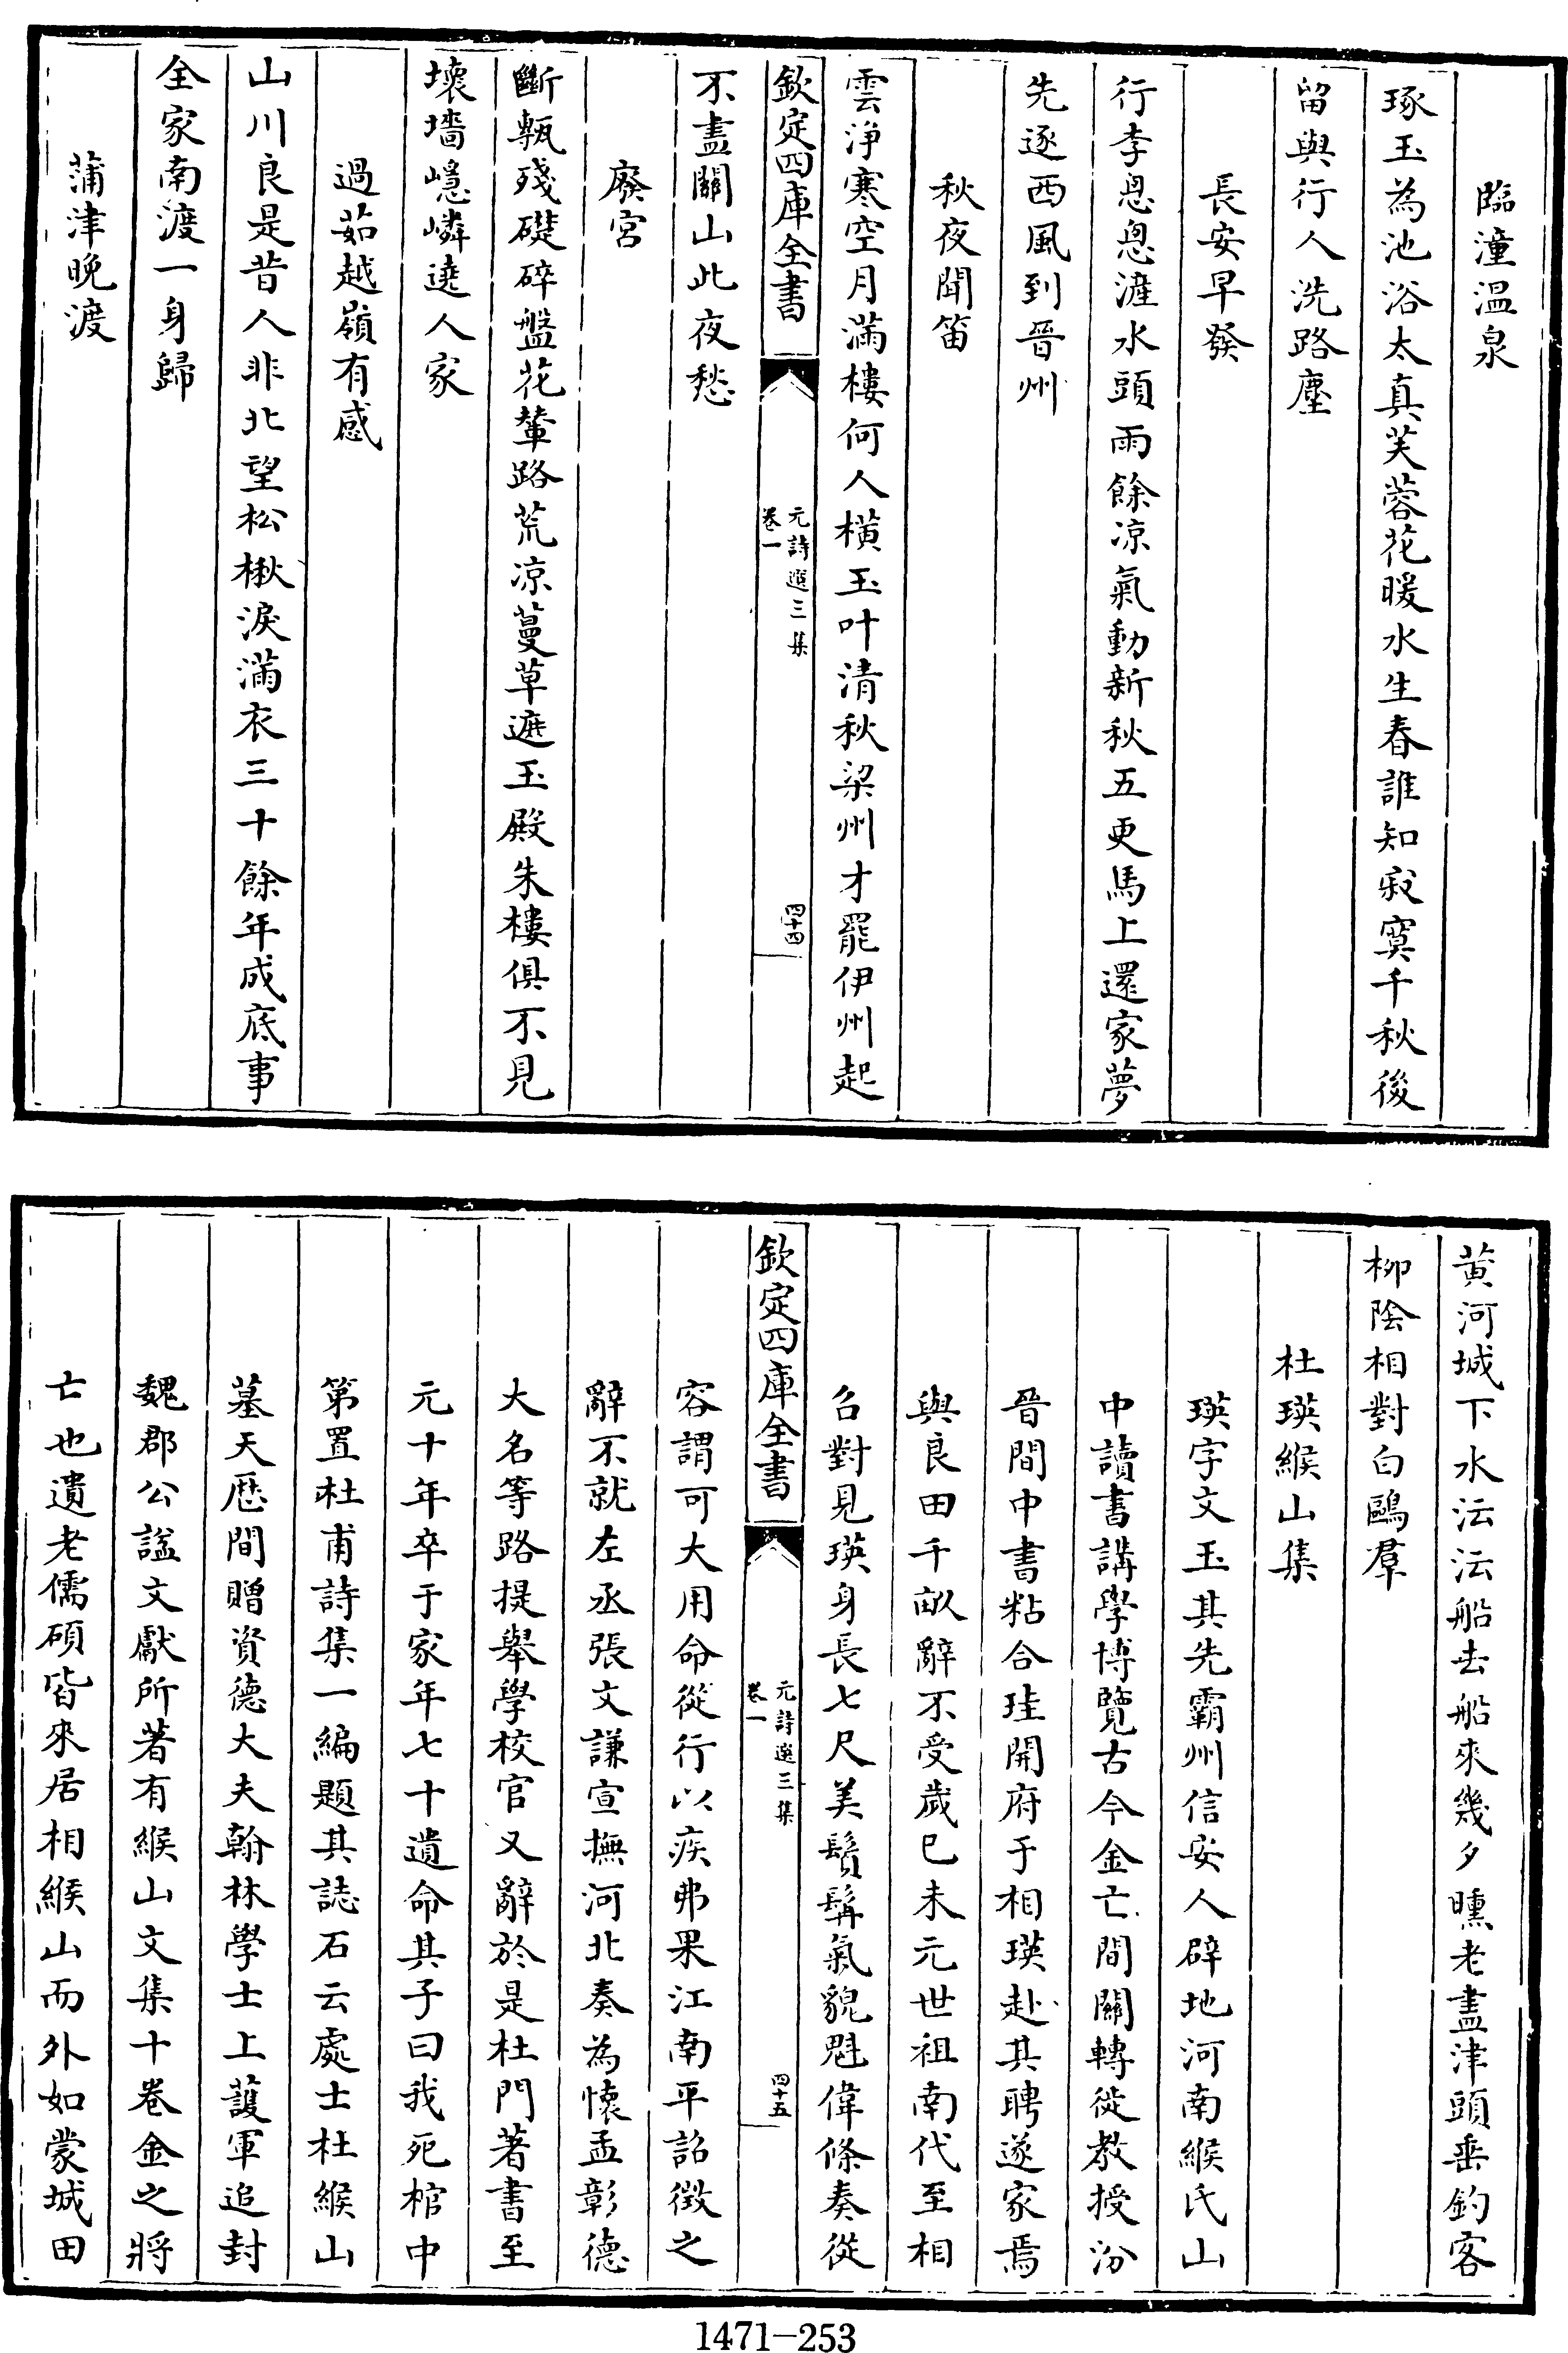 臨潼溫泉
琢玉為池浴太真芙蓉花暖水生春誰知寂寞千秋後
留與行人洗路塵
長安早發
行李悤悤滻水頭雨餘凉氣動新秋五更馬上還家夢
先逐西風到晉州
秋夜聞笛
雲淨寒空月滿樓何人横玉叶清秋梁州才罷伊州起
欽定四庫全書
元詩選三集
卷一
四十四
不盡關山此夜愁
廢宮
斷甎殘礎碎盤花輦路荒凉蔓草遮玉殿朱樓俱不見
壞墻嶾嶙遶人家
過茹越嶺有感
山川良是昔人非北望松楸淚滿衣三十餘年成底事
全家南渡一身歸
蒲津晚渡
黃河城下水沄沄船去船來幾夕曛老盡津頭垂釣客
柳陰相對白鷗羣
杜瑛緱山集
瑛字文玉其先霸州信安人辟地河南緱氏山
中讀書講學博覽古今金亡間關轉徙教授汾
晉間中書粘合珪開府于相瑛赴其聘遂家焉
與良田千畝辭不受歲巳未元世祖南代至相
召對見瑛身長七尺美鬚髯氣貌魁偉條奏從
欽定四庫全書
元詩選三集
卷一
四十五
容謂可大用命從行以疾弗果江南平詔徴之
辭不就左丞張文謙宣撫河北奏為懷孟彰德
大名等路提舉學校官又辭於是杜門著書至
元十年卒于家年七十遺命其子曰我死棺中
第置杜甫詩集一編題其誌石云處士杜緱山
墓天厯間贈資德大夫翰林學士上護軍追封
魏郡公諡文獻所著有緱山文集十卷金之將
亡也遺老儒碩皆來居相緱山而外如蒙城田
1471—253